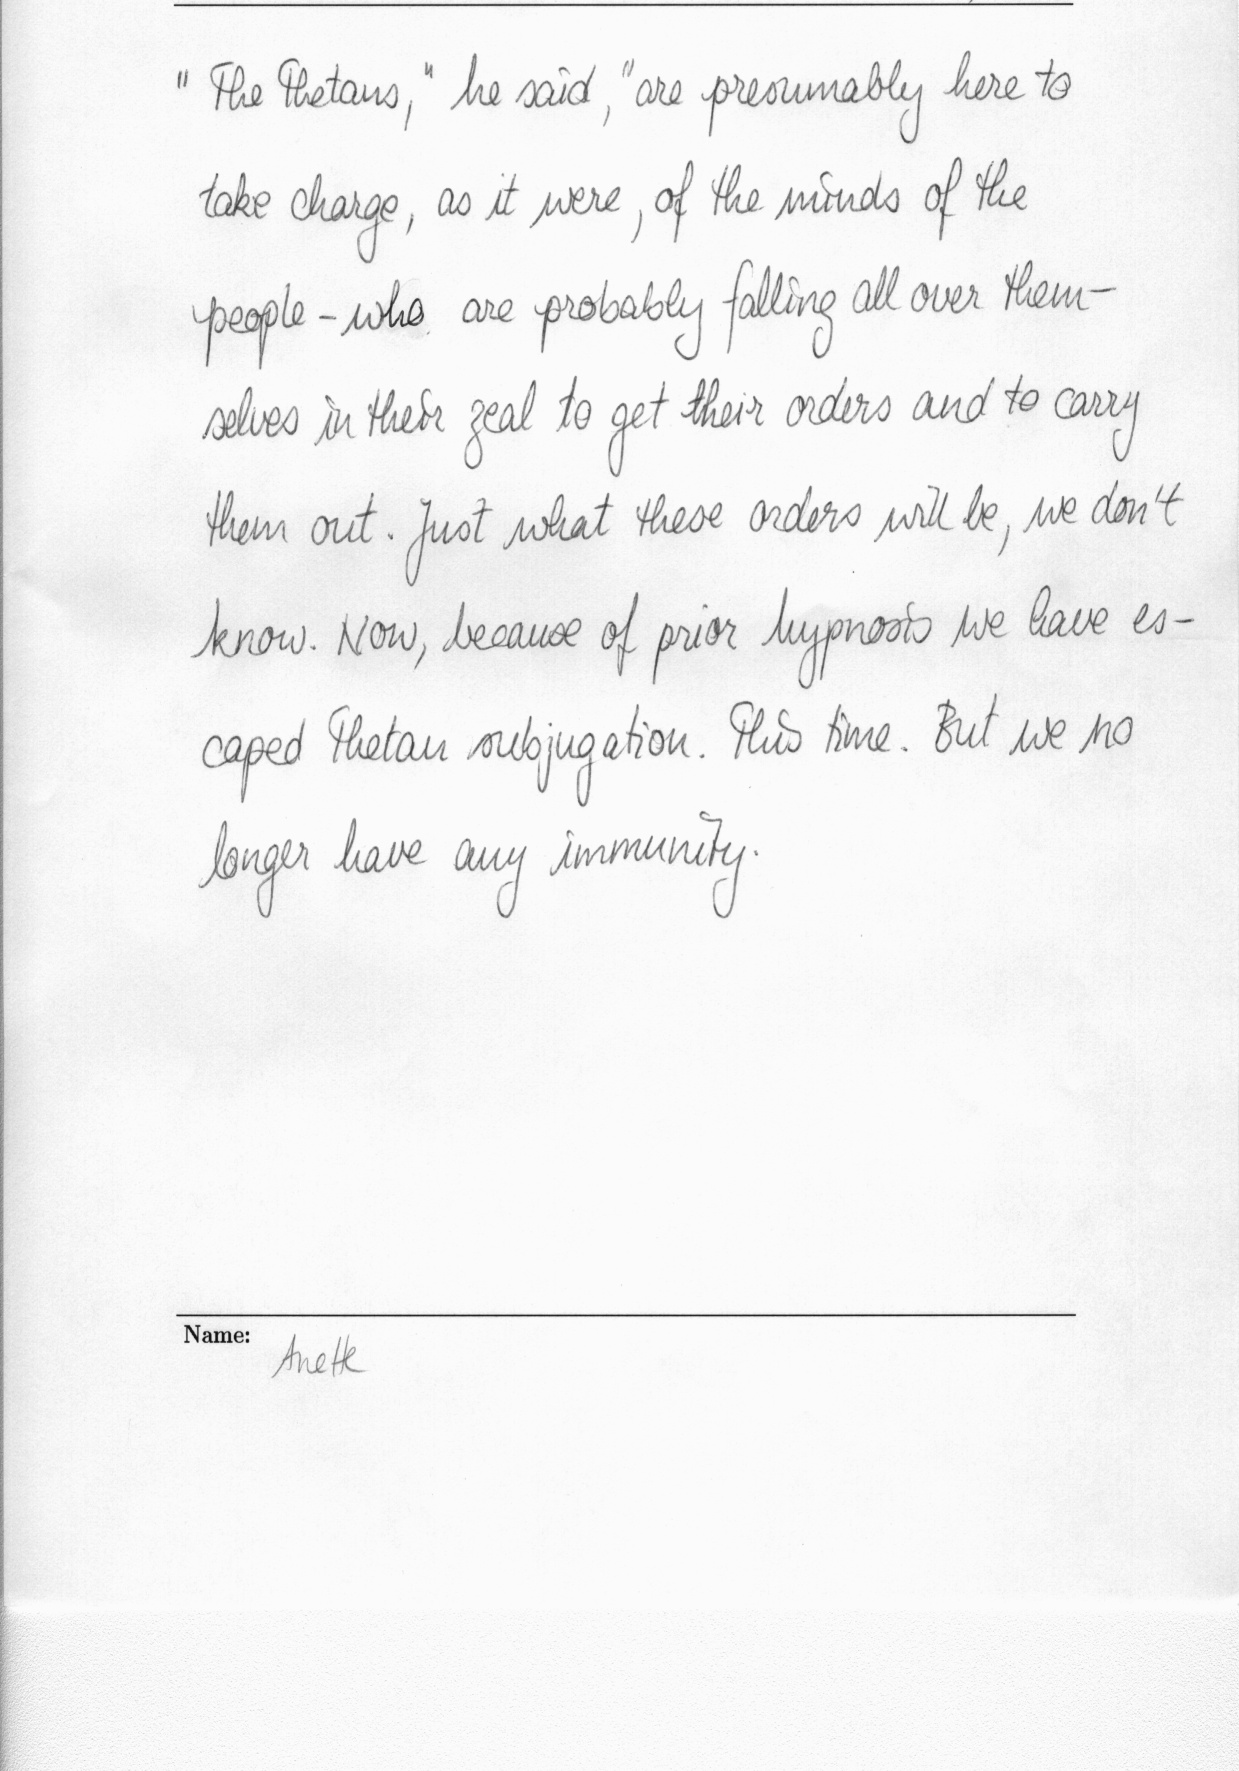 "The Thetans," he said, "are presumably here to
take charge, as it were, of the minds of the
people - who are probably falling all over them-
selves in their zeal to get their orders and to carry
them out. Just what these orders will be, we don't
know. Now, because of prior hypnosis we have es-
caped Thetan subjugation. This time. But we no
longer have any immunity.
Name:
Anette